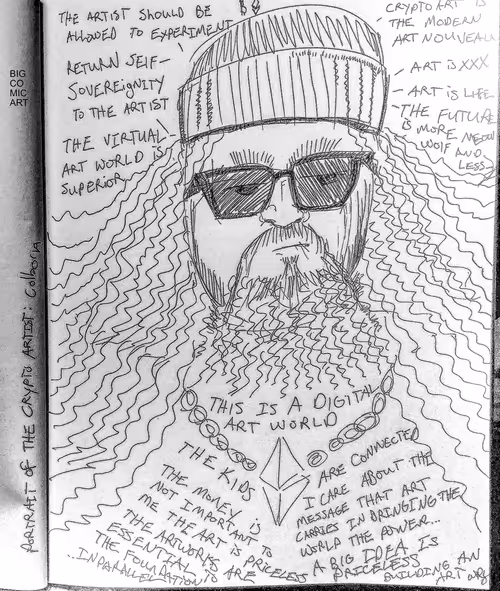 THE ARTIST SHOULD BE
ALLOWED TO EXPERIMENT
RETURN SELF-
SOVEREIGNITY
TO THE ARTIST
THE VIRTUAL
ART WORLD IS
SUPERIOR
CRYPTO ART IS
THE MODERN
ART NOUVEAU
ART IS XXX
ART IS LIFE
THE FUTURE
IS MORE MEOW
WOLF AND
LESS
BIG
CO
MIC
ART
PORTRAIT OF THE CRYPTO ARTIST: Colborn
THIS IS A DIGITAL
ART WORLD
THE KIDS
ARE CONNECTED
THE MONEY IS
NOT IMPORTANT TO
ME THE ART IS PRICELESS
THE ARTWORKS ARE
ESSENTIAL TO
THE FOUNDATION
..IN PARALLEL
I CARE ABOUT THE
MESSAGE THAT ART
CARRIES IN BRINGING THE
WORLD THE POWER...
A BIG IDEA IS
PRICELESS
BUILDING AN
ART